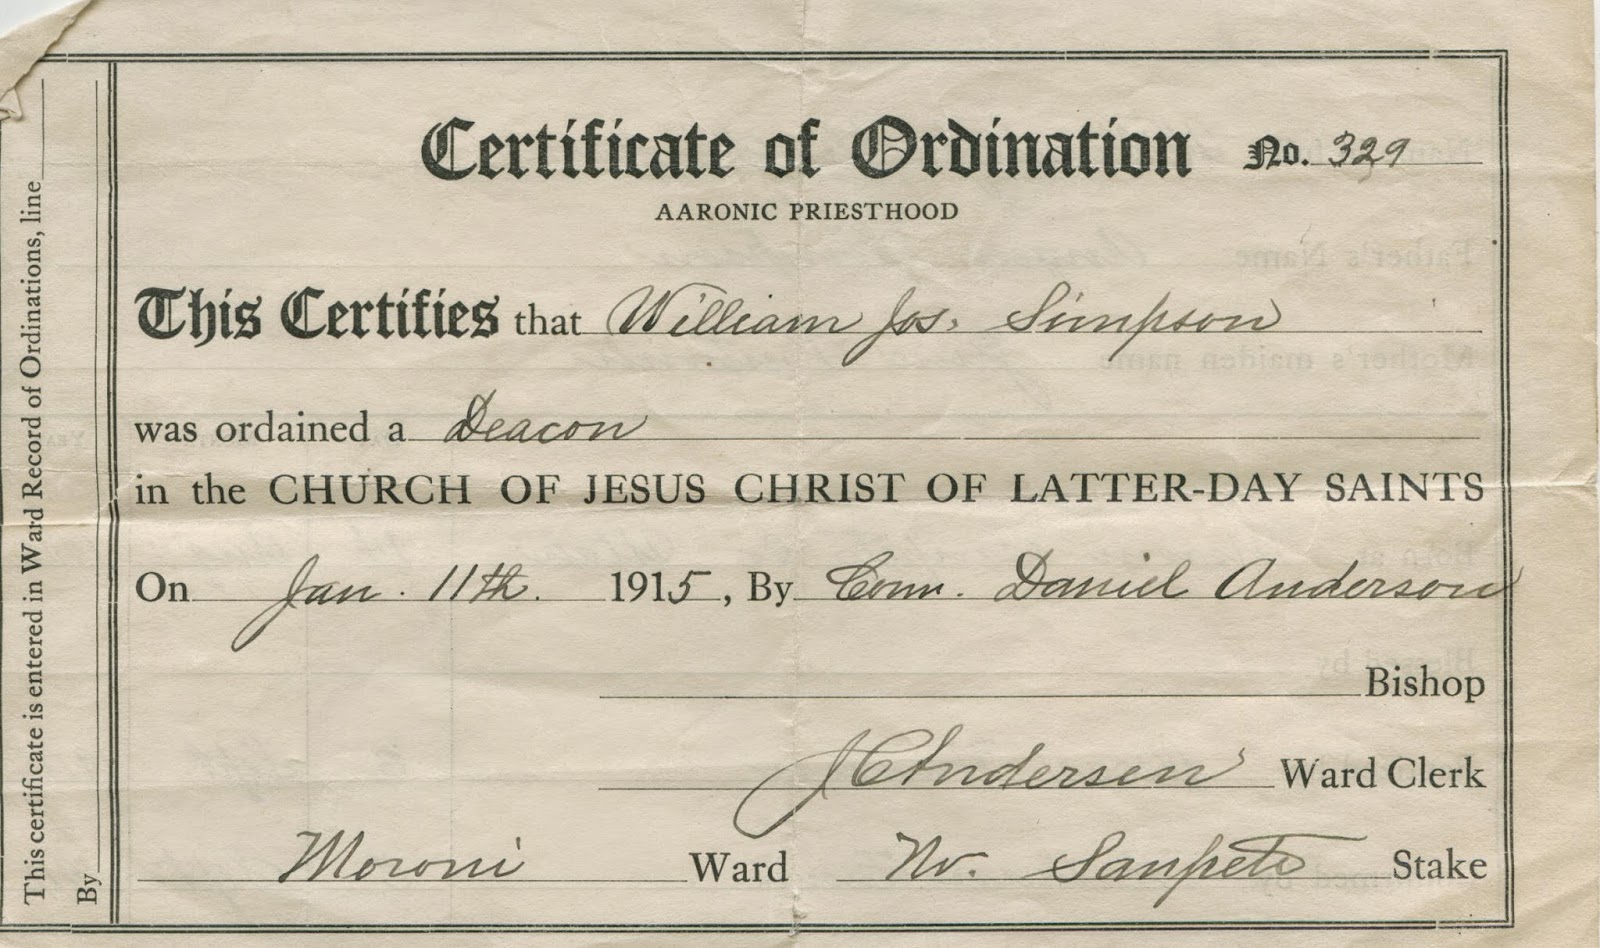 Certificate of Ordination No. 329
AARONIC PRIESTHOOD
This Certifies that William Jos. Simpson
was ordained a Deacon
in the CHURCH OF JESUS CHRIST OF LATTER-DAY SAINTS
On Jan. 11th. 1915, By Conr. Daniel Anderson
Bishop
J C Andersen Ward Clerk
Moroni Ward No. Sanpete Stake
This certificate is entered in Ward Record of Ordinations, line
By